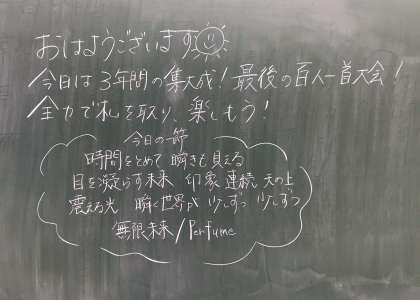 おはようございます
今日は3年間の集大成！最後の百人一首大会！
全力で札を取り、楽しもう！
今日の一節
時間をとめて 瞬きも見える
目を凝らす未来 印象 連続 天の上
震える光 瞬く世界が 少しずつ 少しずつ
無限未来/Perfume